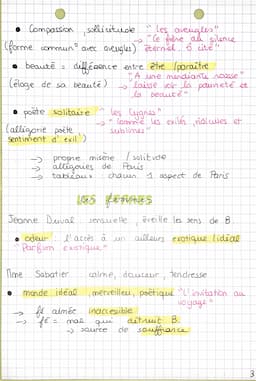 • Compassion, sollicitude "les aveugles"
→ "Ce frère du silence
(forme commun° avec aveugles) éternel. Ô cité"
• beauté = différence entre être/paraître
"A une mendiante rousse"
(éloge de sa beauté) → laisse voir la pauvreté et
la beauté"
• poète solitaire "les cygnes"
→ "comme les exilés, ridicules et
(allégorie poète sublimes"
sentiment d'exil)
→ propre misère / solitude
→ allégories de Paris
→ tableaux : chacun 1 aspect de Paris
les femmes
Jeanne Duval sensuelle, éveille les sens de B.
• odeur l'accès à un ailleurs exotique / idéal
"Parfum exotique"
Mme Sabatier calme, douceur, tendresse
• monde idéal, merveilleux, poétique "L'invitation au
voyage"
→ fê aimée inaccessible
→ fê = mal qui détruit B.
→ source de souffrance
3